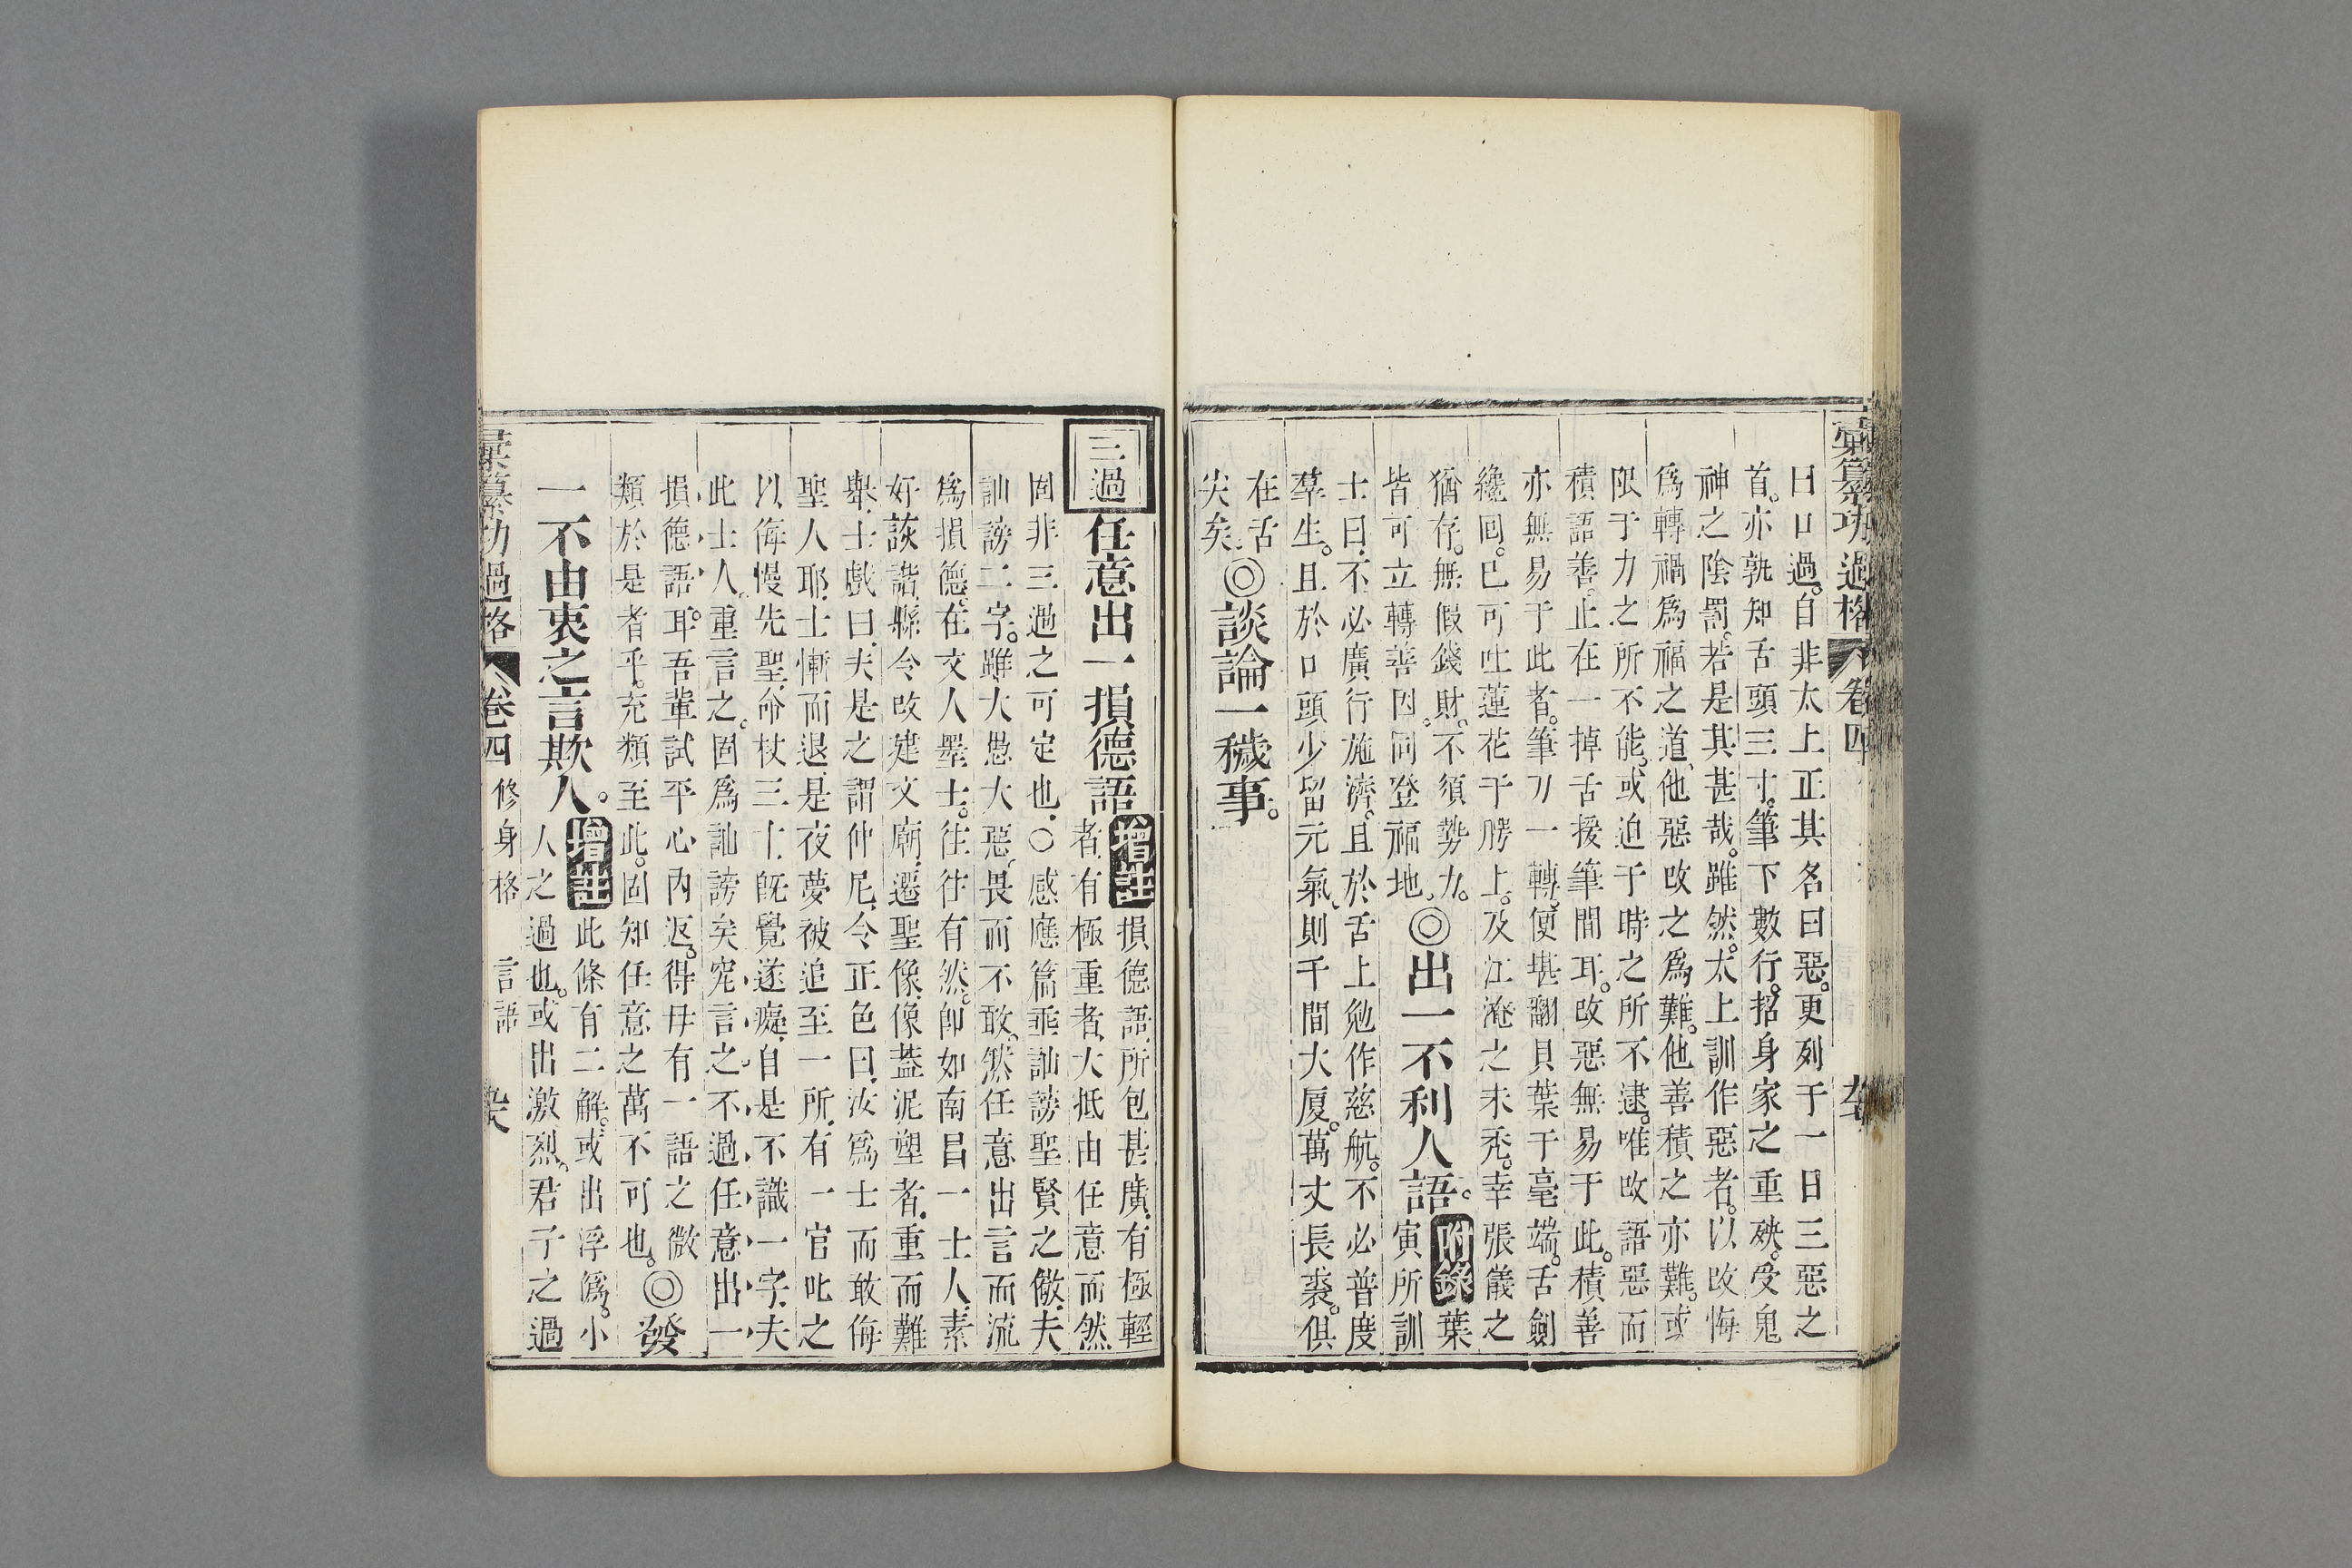 彙纂功過格 卷四
曰口過。自非太上正其名曰惡。更列于一日三惡之
首。亦孰知舌頭三寸。筆下數行。招身家之重殃。受鬼
神之陰罰。若是其甚哉。雖然。太上訓作惡者。以改悔
爲轉禍爲福之道、他惡改之爲難。他善積之亦難。或
限于力之所不能。或迫于時之所不逮。唯改語惡而
積語善。止在一掉舌援筆間耳。改惡無易于此。積善
亦無易于此者。筆刀一轉。便堪翻貝葉于毫端。舌劍
纔囘。已可吐蓮花于腭上。及江淹之未禿。幸張儀之
猶存。無假錢財。不須勢力。◎出一不利人語。附錄葉
皆可立轉善因。同登福地。寅所訓
士曰、不必廣行施濟。且於舌上勉作慈航。不必普度
羣生。且於口頭少留元氣、則千間大厦。萬丈長裘。俱
在舌
尖矣。◎談論一穢事。
三過 任意出一損德語 增註 損德語、所包甚廣、有極輕
者、有極重者、大抵由任意而然
固非三過之可定也、○感應篇乖訕謗聖賢之儆、夫
訕謗二字。雖大愚大惡、畏而不敢。然任意出言而流
爲損德、在文人墨士。往往有然。卽如南昌一士人、素
好詼諧、縣令改建文廟、遷聖像、像蓋泥塑者、重而難
舉、士戲曰、夫是之謂仲尼、令正色曰、汝爲士而敢侮
聖人耶、士慚而退、是夜夢被追至一所、有一官叱之
以侮慢先聖、命杖三十、旣覺遂癡、自是不識一字、夫
此士人、重言之。固爲訕謗矣、究言之、不過任意出一
損德語耳。吾輩試平心內返。得毋有一語之微
類於是者乎。充類至此。固知任意之萬不可也。◎發
一不由衷之言欺人。增註 此條有二解。或出浮僞。小
人之過也。或出激烈。君子之過
彙纂功過格 卷四 修身格 言語